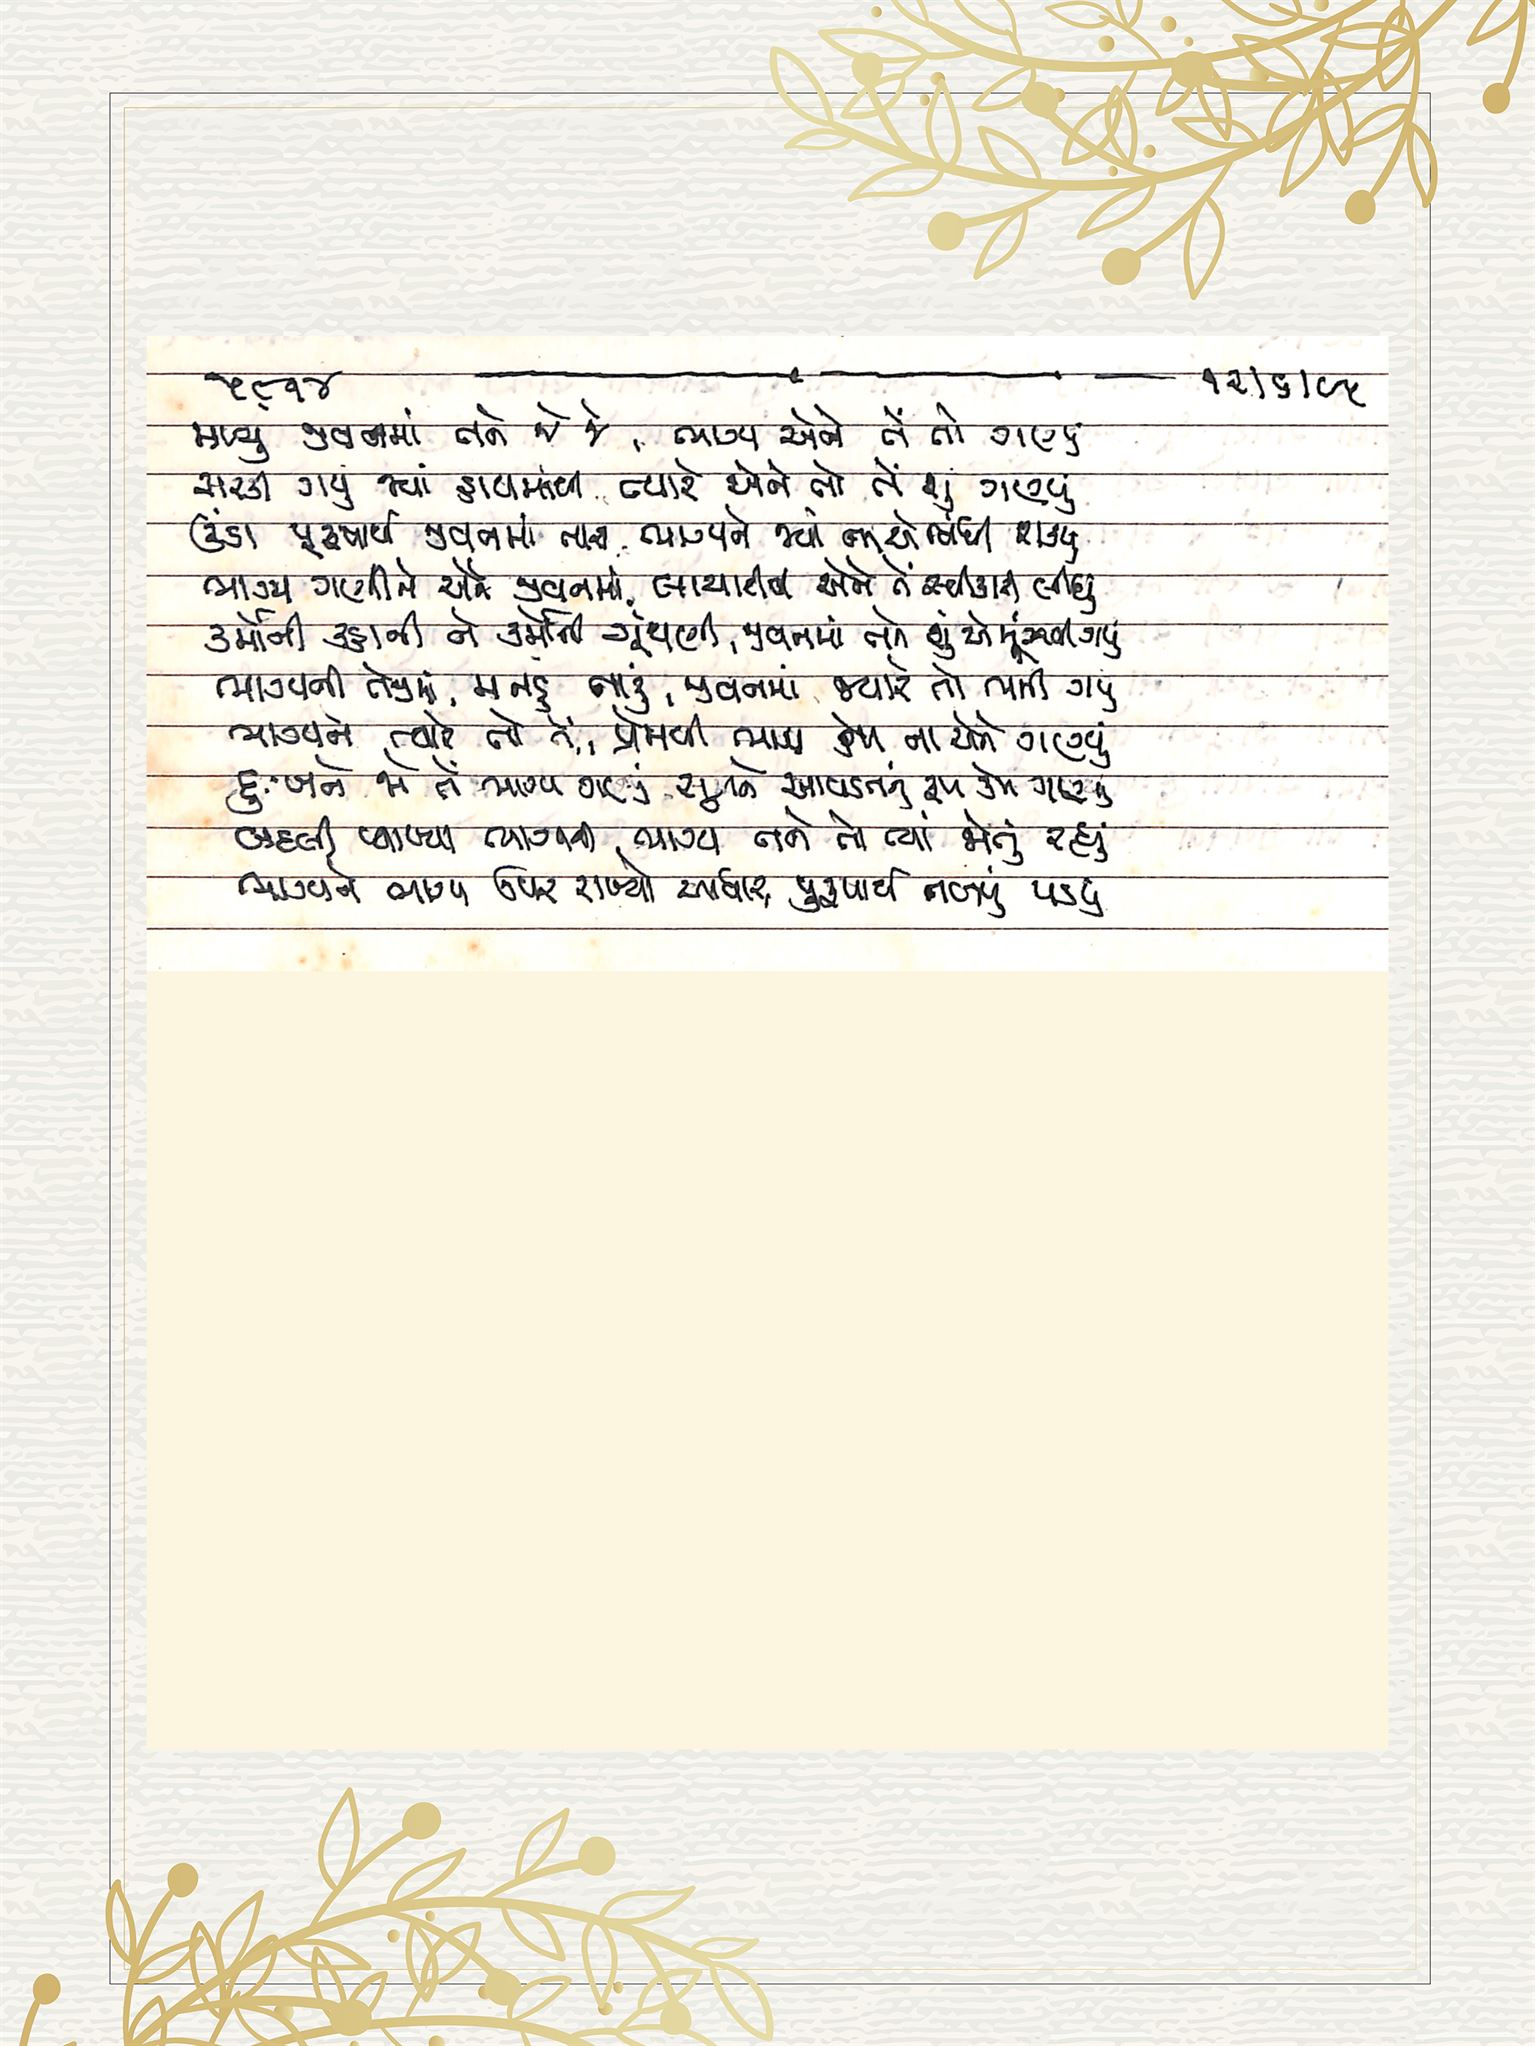 ૫૮૧૪ ૧૨/૬/૯૫
મળ્યું જીવનમાં તને જે જે, ભાગ્ય એને તેં તો ગણ્યું
સરકી ગયું જ્યાં હાથમાંથી, ત્યારે એને તો તેં શું ગણ્યું
ઉંડા પૂરુષાર્થ જીવનમાં તારા, ભાગ્યને જ્યાં ના એ બાંધી શક્યું
ભાગ્ય ગણીને એને જીવનમાં, લાચારીથી એને તેં સ્વીકારી લીધું
કર્મોની કહાની ને કર્મોની ગૂંથણી, જીવનમાં તને શું એ મૂંઝવી ગયું
ભાગ્યની તેજીમાં, મનડું તારું, જીવનમાં જ્યારે તો ભાની ગયું
ભાગ્યને ત્યારે તો તેં, પ્રેમથી ભાગ્ય કેમ ના એને ગણ્યું
દુઃખને જો તેં ભાગ્ય ગણ્યું, સુખને આવડતનું રૂપ કેમ ગણ્યું
બદલી વ્યાખ્યા ભાગ્યની, ભાગ્ય તને તો ત્યાં જોતું રહ્યું
ભાગ્યને ભાગ્ય ઉપર રાખ્યો આધાર, પુરૂષાર્થ નબળું પડ્યું